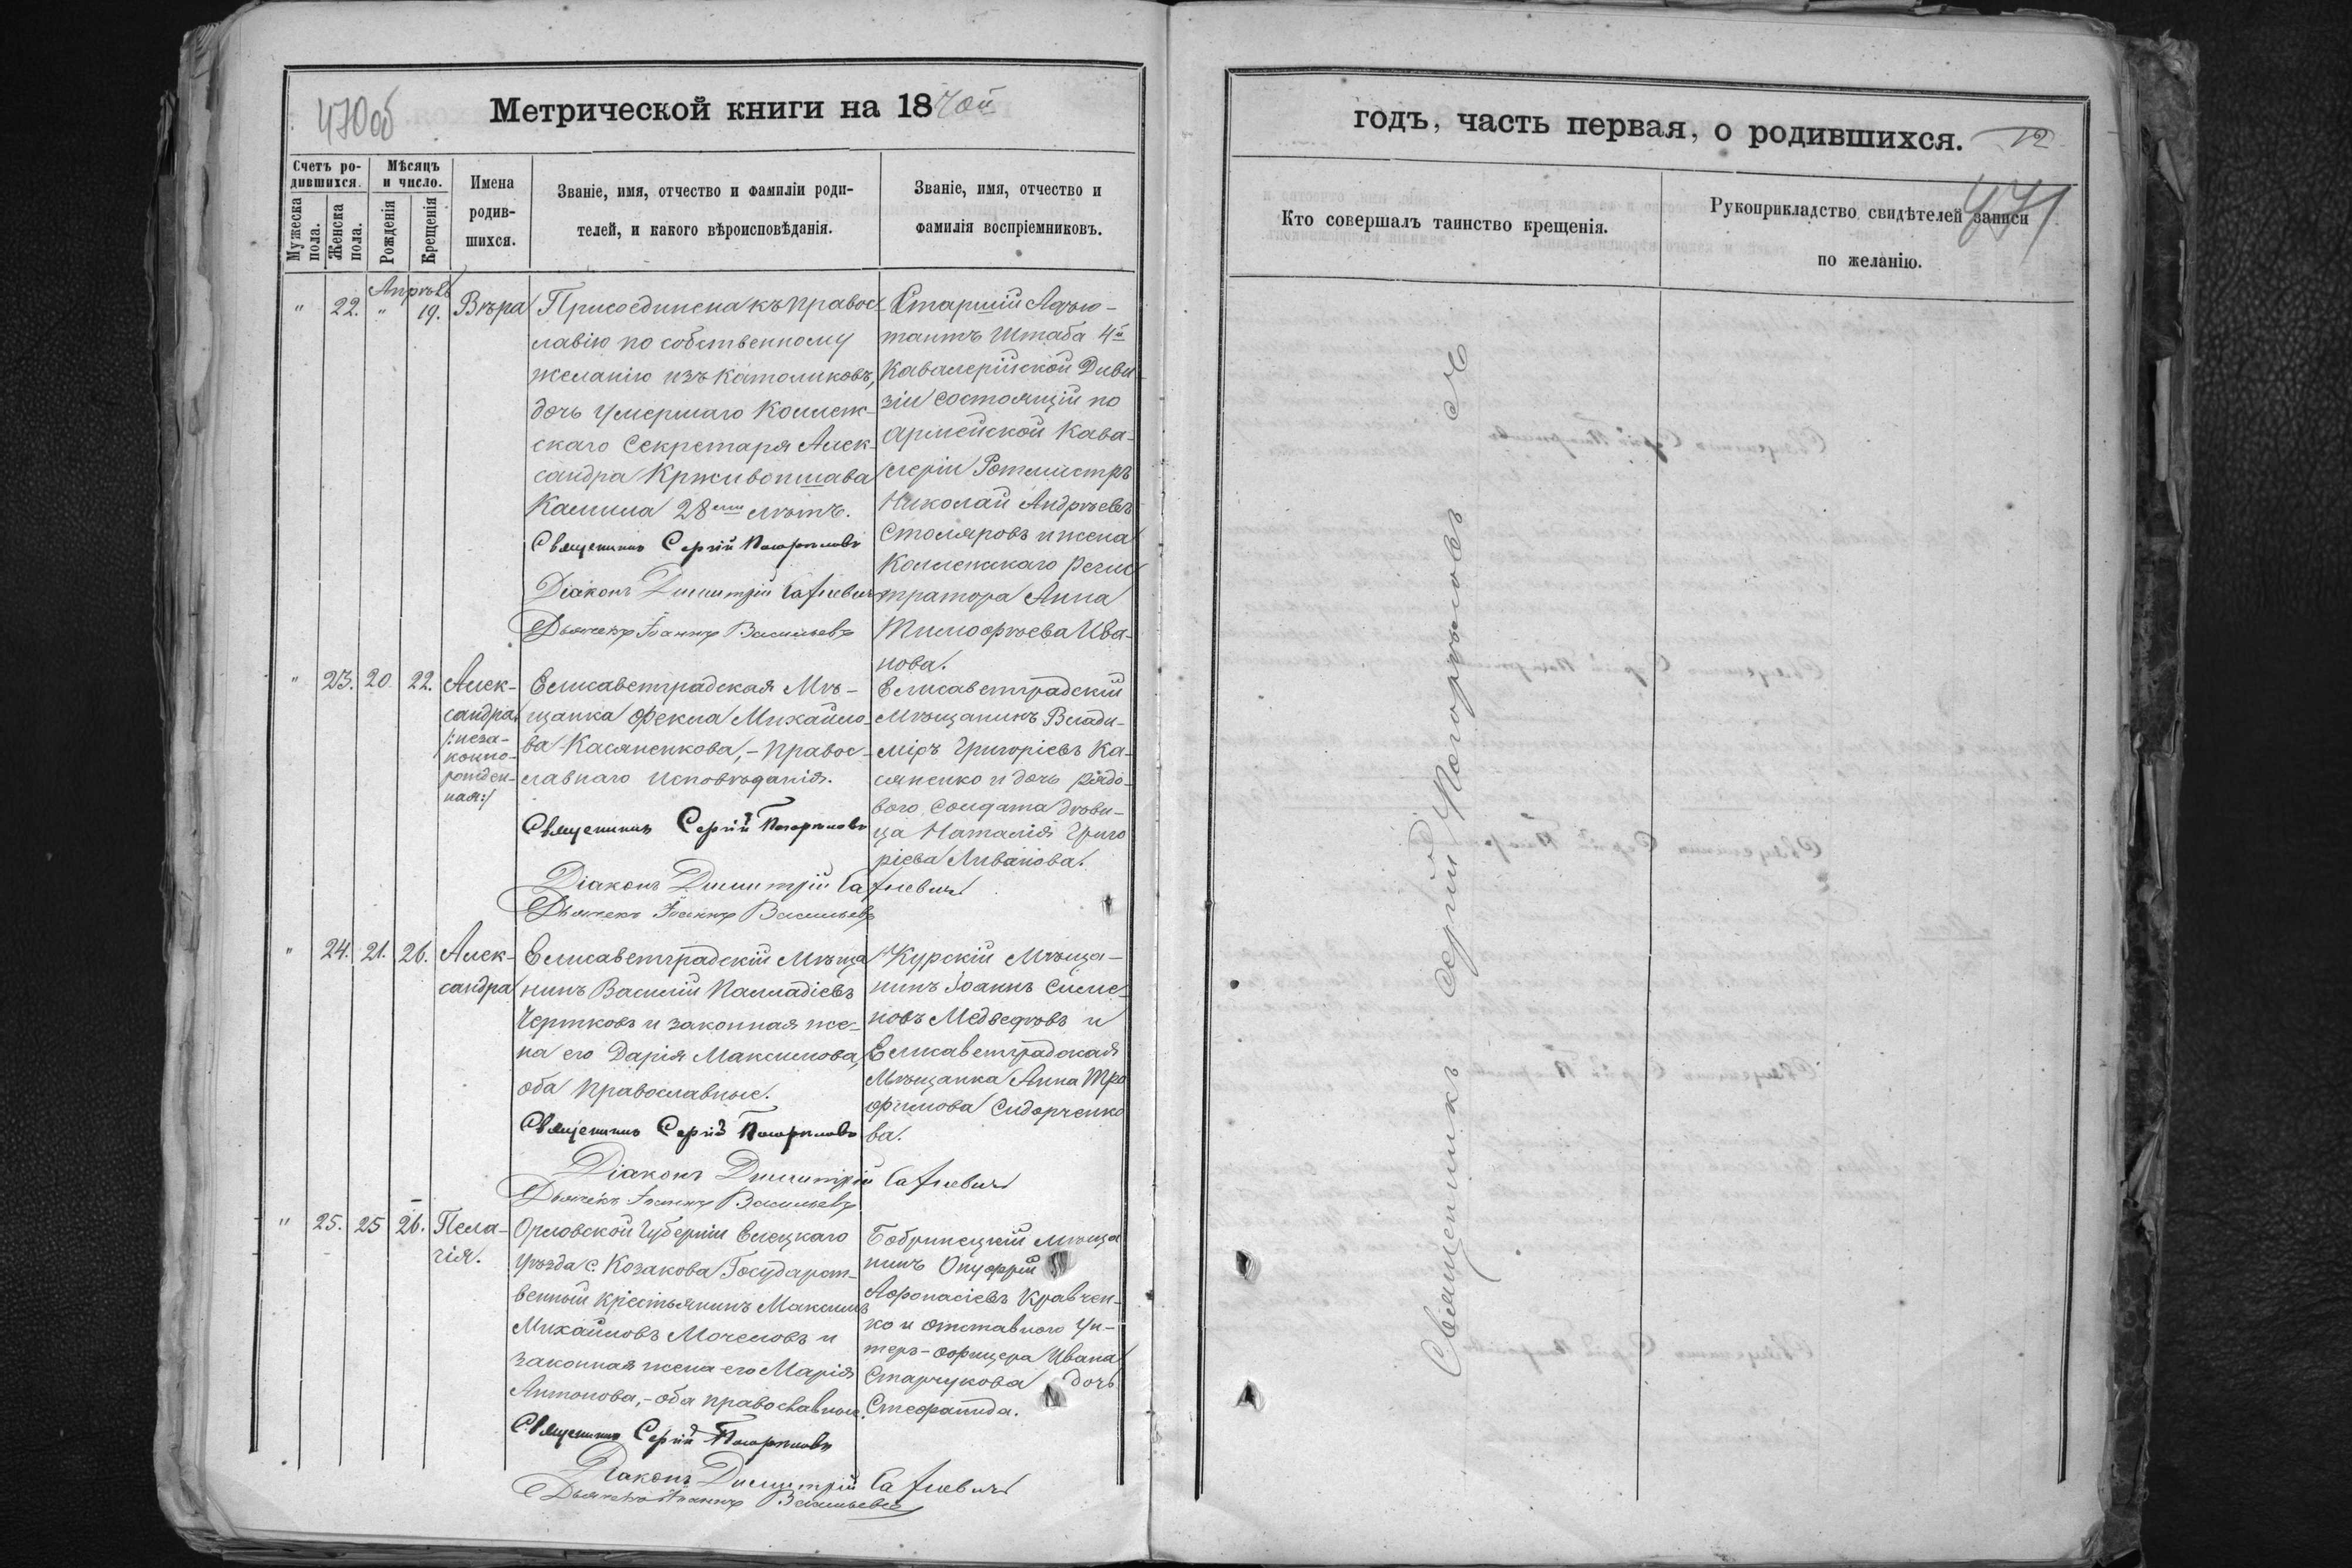 470об
Метрической книги на 18
годъ, часть первая, о родившихся.
12
471
Счетъ ро-
дившихся.
Мѣсяцъ
и число.
Мужеска
пола.
Женска
пола.
Рожденія
Крещенія
Имена
родив-
шихся.
Званіе, имя, отчество и фамиліи роди-
телей, и какого вѣроисповѣданія.
Званіе, имя, отчество и
фамилія воспріемниковъ.
Кто совершалъ таинство крещенія.
Рукоприкладство свидѣтелей записи
по желанію.
Апрѣль
" 22. " 19. Вѣра
Присоединена къ правос-
лавію по собственному
желанію изъ католиковъ,
дочь умершаго Коллеж-
скаго Секретаря Алек-
сандра Крживопишава
Камила 28ми лѣтъ.
Священникъ Сергій Погорѣловъ
Діаконъ Димитрій
Дьячекъ Іоаннъ Васильевъ
Старшій Адъю-
тантъ Штаба 4й
Кавалерійской Диви-
зіи состоящій по
Армейской Кава-
леріи Ротмистръ
Николай Андрѣевъ
Столяровъ и жена
Коллежскаго Регис
тратора Анна
Тимофѣева Ива-
нова.
" 23. 20 22. Алек-
сандра
/:неза-
конно-
рожден-
ная:/
Елисаветградская Мѣ-
щанка Фекла Михайло-
ва Касяненкова, - правос-
лавнаго исповѣданія.
Священникъ Сергій Погорѣловъ
Діаконъ Димитрій
Дьячекъ Іоаннъ Васильевъ
Елисаветградскій
Мѣщанинъ Влади-
міръ Григоріевъ Ка-
сяненко и дочь рядо-
вого Солдата дѣви-
ца Наталія Григо
ріева Ливанова.
" 24. 21. 26. Алек-
сандра
Елисаветградскій Мѣща
нинъ Василій Палладіевъ
Чертковъ и законная же-
на его Дарія Максимова,
оба православные.
Священникъ Сергій Погорѣловъ
Діаконъ Димитрій
Дьячекъ Іоаннъ Васильевъ
Курскій Мѣща-
нинъ Іоаннъ Симе-
новъ Медведѣвъ и
Елисаветградская
Мѣщанка Анна Тро
фимова Сидорченко
ва.
" 25. 25 26. Пела-
гія.
Орловской Губерніи Елецкаго
уѣзда с. Козакова Государст-
венный крестьянинъ Максимъ
Михайловъ Мочеловъ и
законная жена его Марія
Антонова, - оба православные.
Священникъ Сергій Погорѣловъ
Діаконъ Димитрій
Дьячекъ Іоаннъ Васильевъ
Бобринецкій мѣща
нинъ Онуфрій
Афонасіевъ Кравчен-
ко и отставного Ун-
теръ-офицера Ивана
Старчукова дочь
Стефанида.
Священникъ Сергій Погорѣловъ